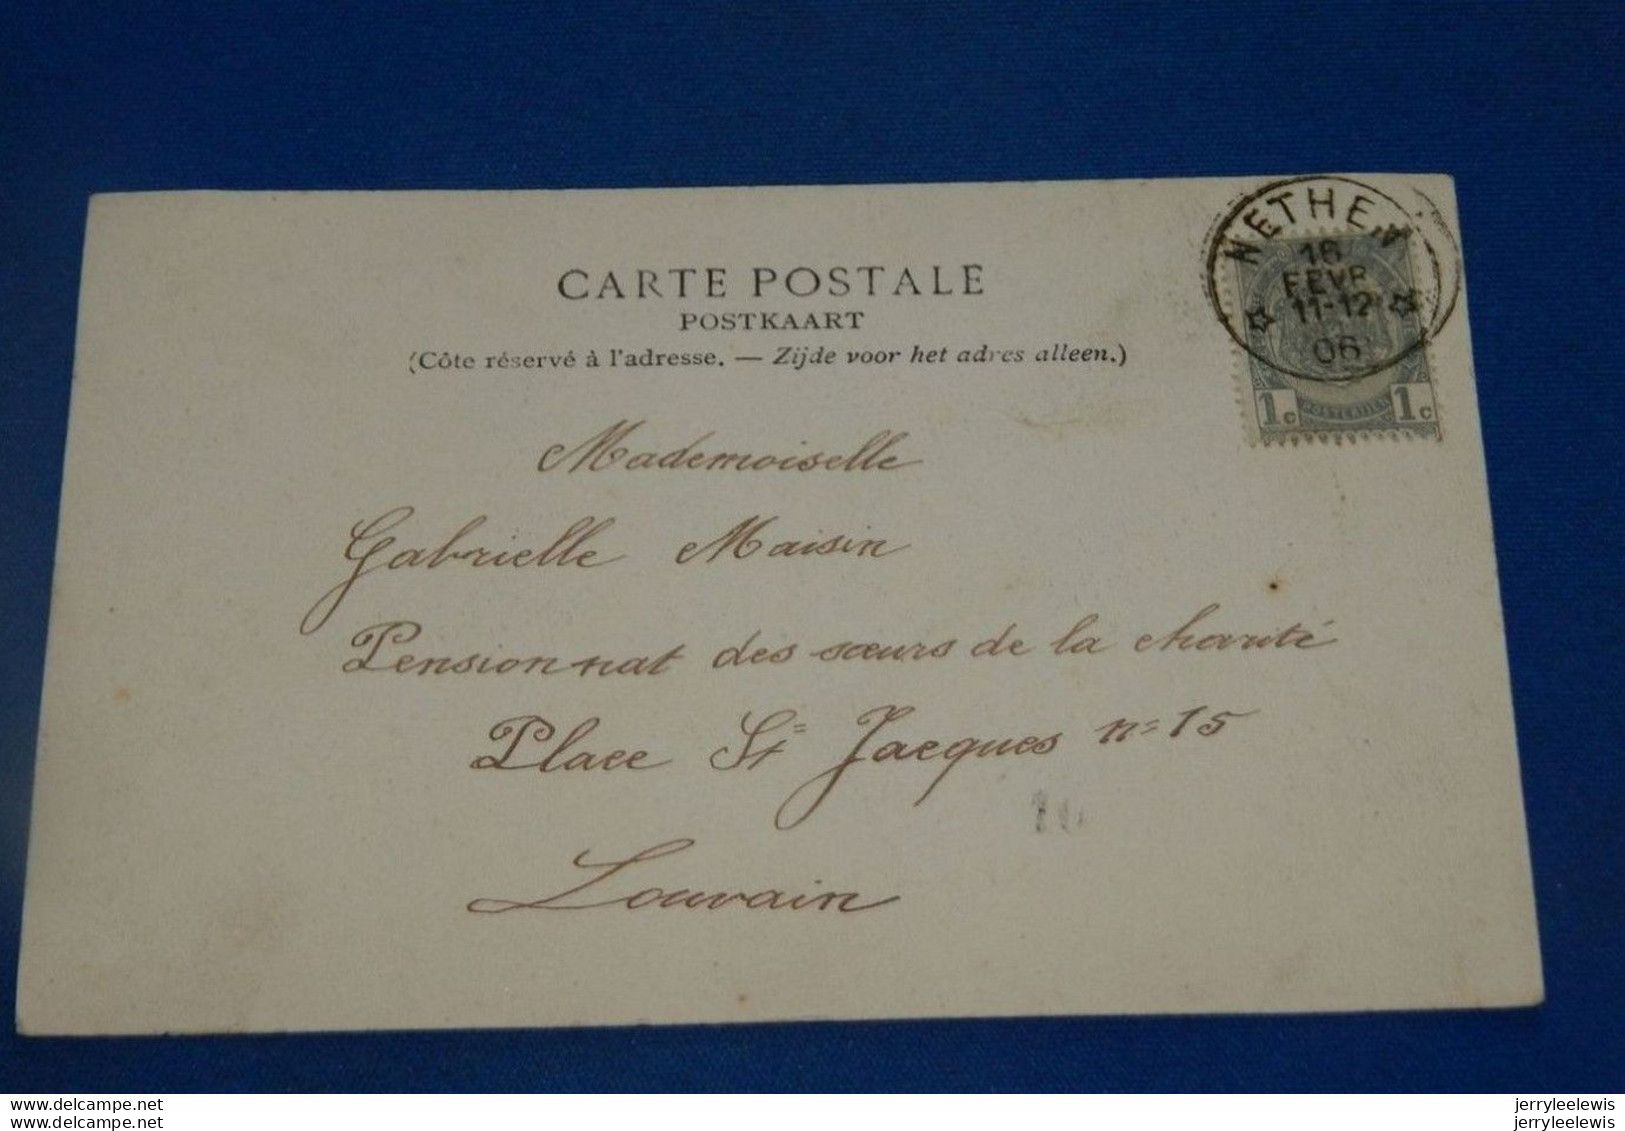 CARTE POSTALE
POSTKAART
(Côte réservé à l'adresse. — Zijde voor het adres alleen.)
NETHEN
16
FEVR
11-12
06
1c POSTERIJEN 1c
Mademoiselle
Gabrielle Maisin
Pensionnat des sœurs de la charité
Place St Jacques n= 15
Louvain
www.delcampe.net jerryleelewis
www.delcampe.net jerryleelewis